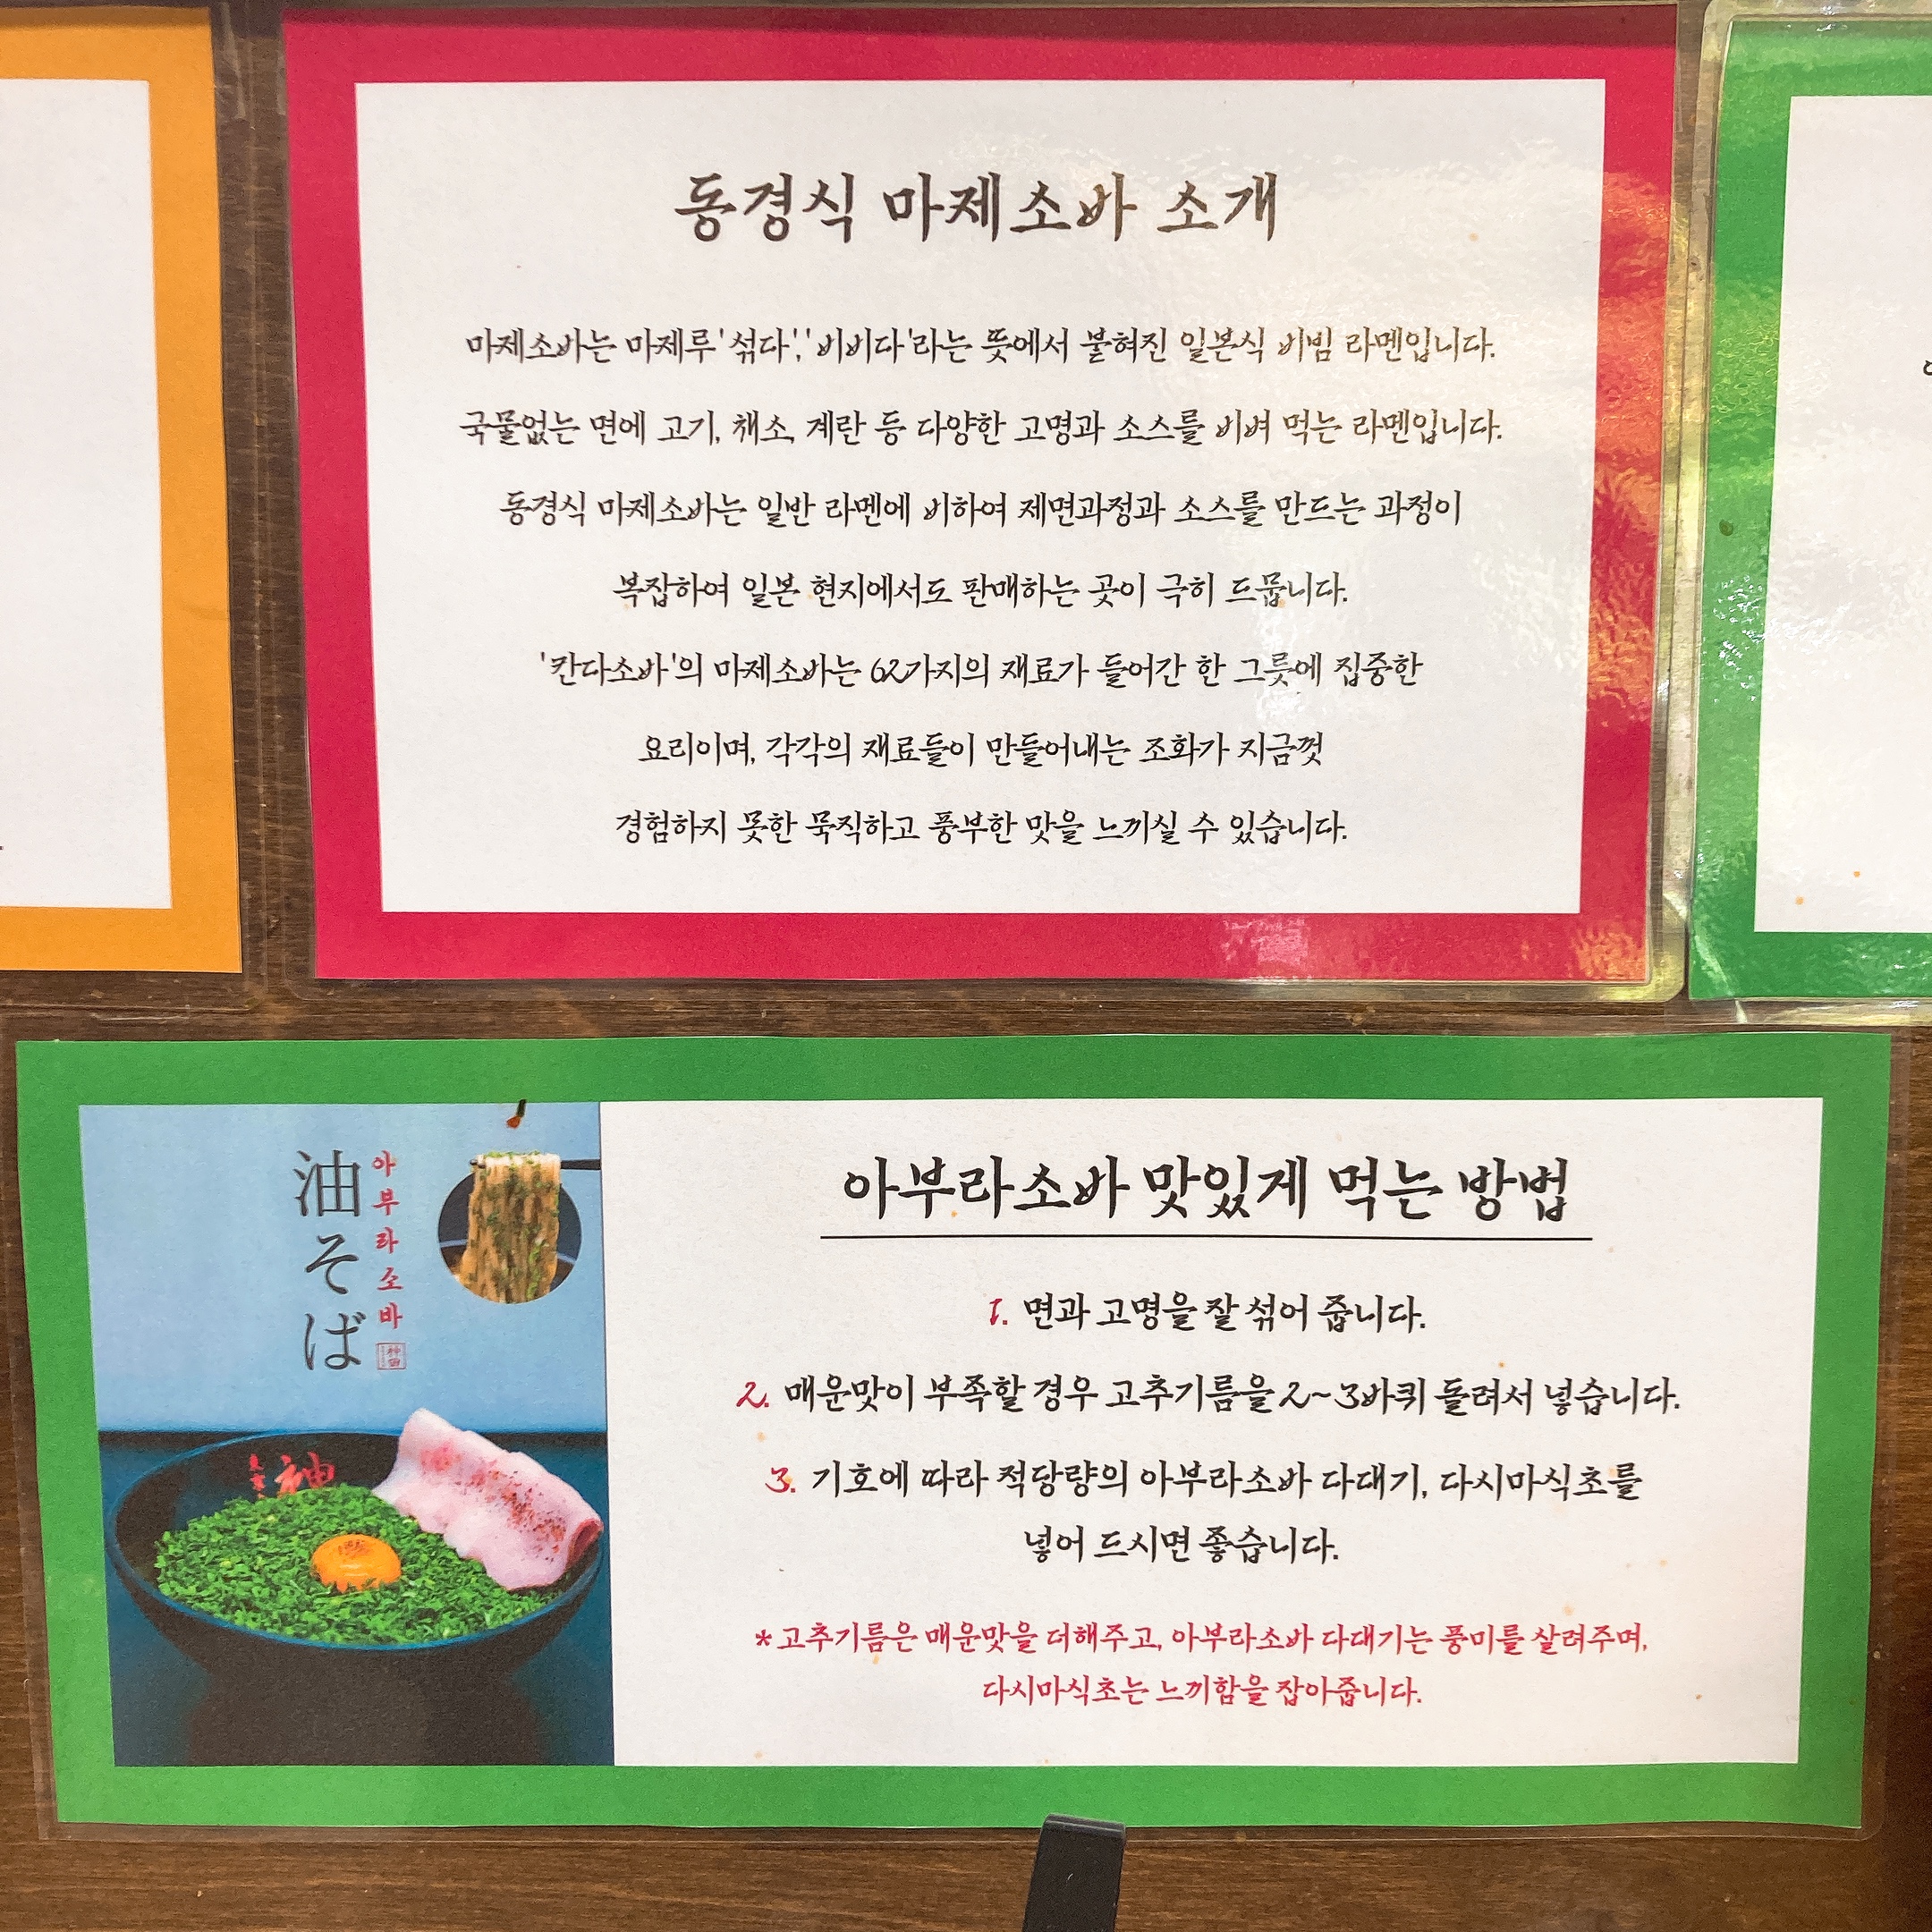 동경식 마제소바 소개
마제소바는 마제루'섞다','비비다'라는 뜻에서 붙혀진 일본식 비빔 라멘입니다.
국물없는 면에 고기, 채소, 계란 등 다양한 고명과 소스를 비벼 먹는 라멘입니다.
동경식 마제소바는 일반 라멘에 비하여 제면과정과 소스를 만드는 과정이
복잡하여 일본 현지에서도 판매하는 곳이 극히 드뭅니다.
'칸다소바'의 마제소바는 62가지의 재료가 들어간 한 그릇에 집중한
요리이며, 각각의 재료들이 만들어내는 조화가 지금껏
경험하지 못한 묵직하고 풍부한 맛을 느끼실 수 있습니다.
油そば
아부라소바
神
아부라소바 맛있게 먹는 방법
1. 면과 고명을 잘 섞어 줍니다.
2. 매운맛이 부족할 경우 고추기름을 2~3바퀴 둘려서 넣습니다.
3. 기호에 따라 적당량의 아부라소바 다대기, 다시마식초를
넣어 드시면 좋습니다.
*고추기름은 매운맛을 더해주고, 아부라소바 다대기는 풍미를 살려주며,
다시마식초는 느끼함을 잡아줍니다.